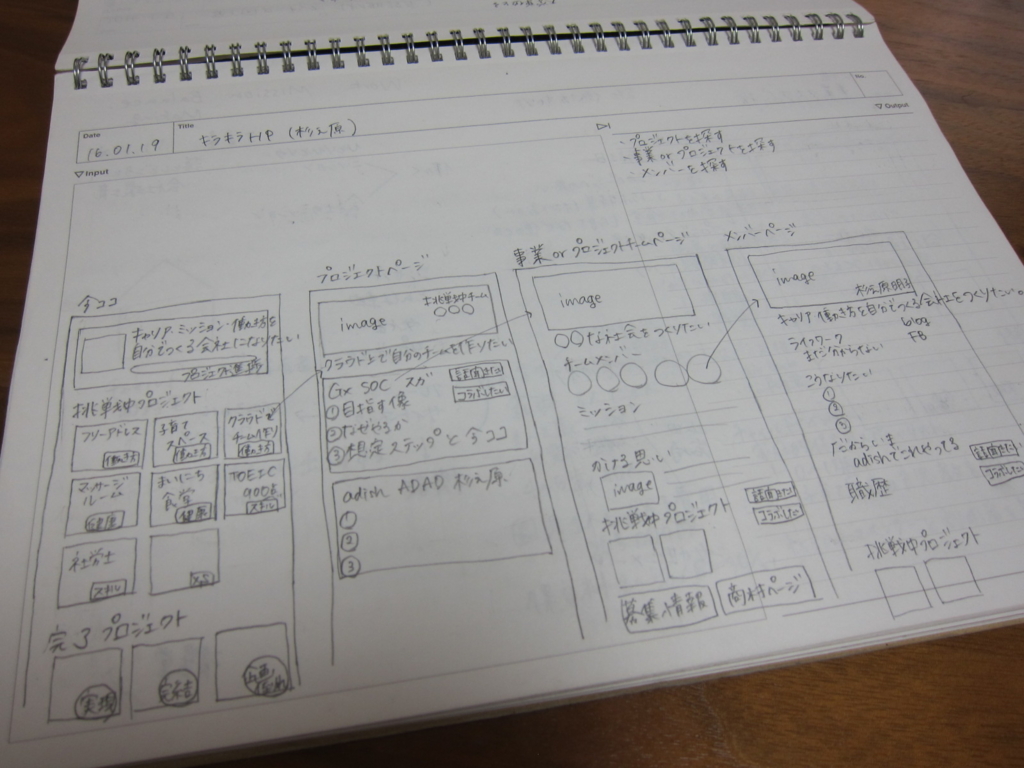 Date
16.01.19
Title
キラキラHP (杉之原)
No.
▽Input
▽Output
・プロジェクトを探す
・事業 or プロジェクトを探す
・メンバーを探す
今ココ
キャリア ミッション・働き方を
自分でつくる会社になりたい
プロジェクト
挑戦中プロジェクト
フリーアドレス
働き方
子育て
スペース
働き方
クラウド
チーム作り
働き方
マッサージ
ルーム
健康
まいにち
食堂
健康
TOEIC
900点
スキル
社労士
スキル
完了プロジェクト
実現
プロジェクトページ
image
挑戦中チーム
○○○
クラウド上で自分のチームを作りたい
Gx SOC スガ
①目指す像
②なぜやるか
③想定ステップと今ココ
話聞きたい
コラボしたい
adish ADAD 杉之原
①
②
③
事業 or プロジェクトチームページ
image
○○な社会をつくりたい
チームメンバー
ミッション
かける思い
image
話聞きたい
コラボしたい
挑戦中プロジェクト
募集情報
商材ページ
メンバーページ
image
杉之原明子
キャリア 働き方を自分でつくる会社をつくりたい。
ライフワーク
まだ分からない
blog
FB
こうなりたい
①
②
③
だからいま
adishでこれやってる
職歴
話聞きたい
コラボしたい
挑戦中プロジェクト